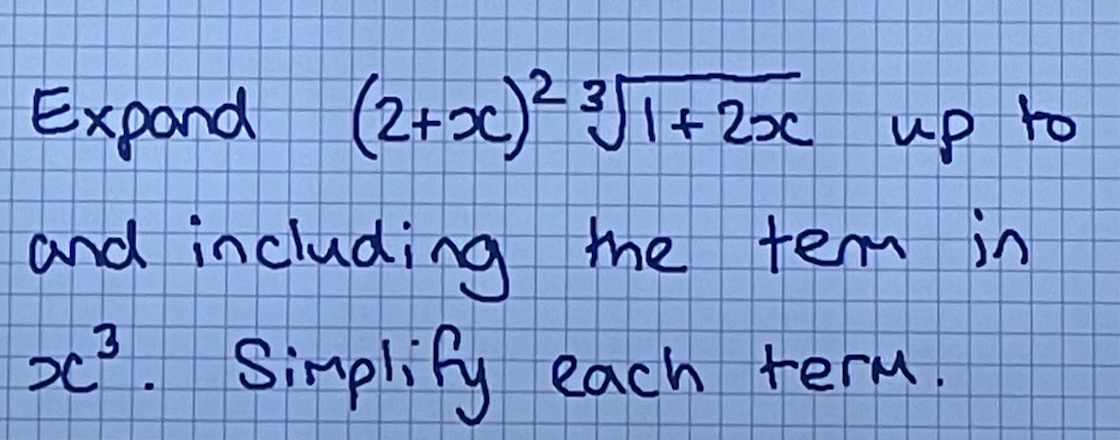 Expand (2+x)² ³√(1+2x) up to
and including the term in
x³. Simplify each term.